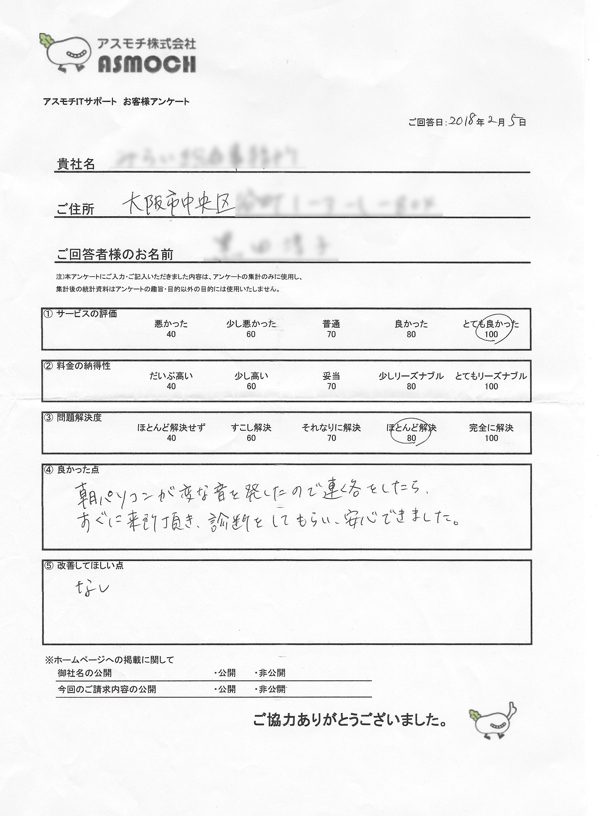 アスモチ株式会社
ASMOCH
アスモチITサポート お客様アンケート
ご回答日:2018年2月5日
貴社名
ご住所 大阪市中央区
ご回答者様のお名前
注)本アンケートにご入力・ご記入いただきました内容は、アンケートの集計のみに使用し、
集計後の統計資料はアンケートの趣旨・目的以外の目的には使用いたしません。
① サービスの評価
悪かった 少し悪かった 普通 良かった とても良かった
40 60 70 80 100
② 料金の納得性
だいぶ高い 少し高い 妥当 少しリーズナブル とてもリーズナブル
40 60 70 80 100
③ 問題解決度
ほとんど解決せず すこし解決 それなりに解決 ほとんど解決 完全に解決
40 60 70 80 100
④ 良かった点
朝パソコンが変な音を発したので連絡をしたら、
すぐに来所頂き、診断をしてもらい、安心できました。
⑤ 改善してほしい点
なし
※ホームページへの掲載に関して
御社名の公開 ・公開 ・非公開
今回のご請求内容の公開 ・公開 ・非公開
ご協力ありがとうございました。